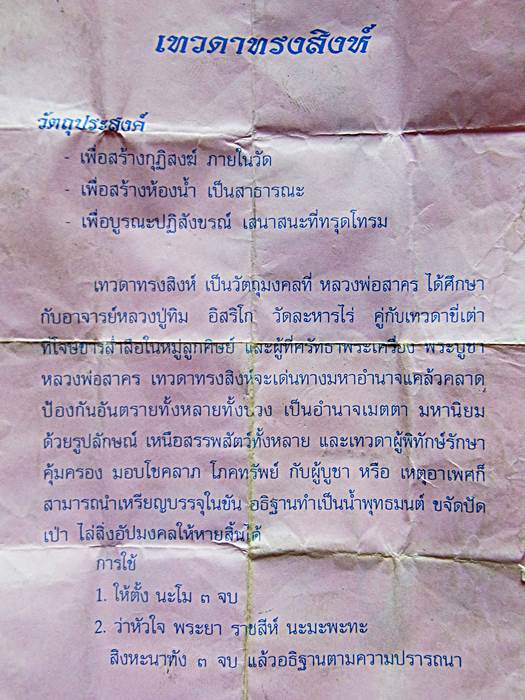 เทวดาทรงสิงห์
วัตถุประสงค์
- เพื่อสร้างกุฏิสงฆ์ ภายในวัด
- เพื่อสร้างห้องน้ำ เป็นสาธารณะ
- เพื่อบูรณะปฏิสังขรณ์ เสนาสนะที่ทรุดโทรม
เทวดาทรงสิงห์ เป็นวัตถุมงคลที่ หลวงพ่อสาคร ได้ศึกษา
กับอาจารย์หลวงปู่ทิม อิสริโก วัดละหารไร่ คู่กับเทวดาขี่เต่า
ที่โจษขารล่ำลือในหมู่ลูกศิษย์ และผู้ที่ศรัทธาพระเครื่อง พระบูชา
หลวงพ่อสาคร เทวดาทรงสิงห์จะเด่นทางมหาอำนาจแคล้วคลาด
ป้องกันอันตรายทั้งหลายทั้งปวง เป็นอำนาจเมตตา มหานิยม
ด้วยรูปลักษณ์ เหนือสรรพสัตว์ทั้งหลาย และเทวดาผู้พิทักษ์รักษา
คุ้มครอง มอบโชคลาภ โภคทรัพย์ กับผู้บูชา หรือ เหตุอาเพศก็
สามารถนำเหรียญบรรจุในขัน อธิฐานทำเป็นน้ำพุทธมนต์ ขจัดปัด
เป่า ไล่สิ่งอัปมงคลให้หายสิ้นได้
การใช้
1. ให้ตั้ง นะโม ๓ จบ
2. ว่าหัวใจ พระยา ราชสีห์ นะมะพะทะ
สิงหะนาทัง ๓ จบ แล้วอธิฐานตามความปรารถนา